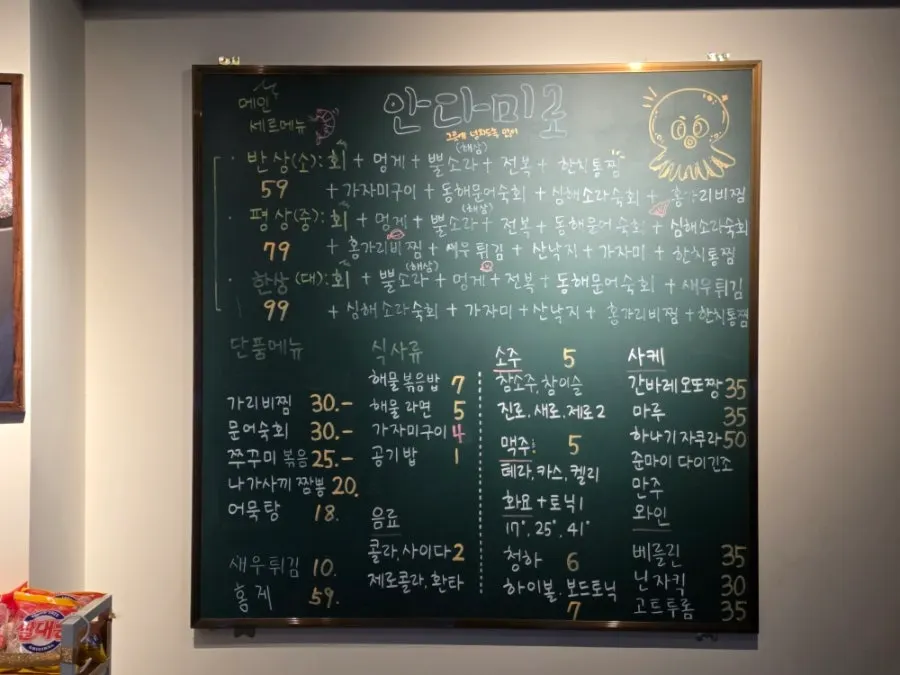 메인
세트메뉴
안다미로
그릇에 넘치도록 많이
(해삼)
· 반상(소): 회 + 멍게 + 뿔소라 + 전복 + 한치통찜
59 + 가자미구이 + 동해문어숙회 + 심해소라숙회 + 홍가리비찜
(해삼)
· 평상(중): 회 + 멍게 + 뿔소라 + 전복 + 동해문어숙회 + 심해소라숙회
79 + 홍가리비찜 + 새우튀김 + 산낙지 + 가자미 + 한치통찜
(해삼)
· 한상(대): 회 + 뿔소라 + 멍게 + 전복 + 동해문어숙회 + 새우튀김
99 + 심해소라숙회 + 가자미 + 산낙지 + 홍가리비찜 + 한치통찜
단품메뉴
가리비찜 30.-
문어숙회 30.-
쭈꾸미볶음 25.-
나가사끼짬뽕 20.
어묵탕 18.
새우튀김 10.
홍게 59.
식사류
해물볶음밥 7
해물라면 5
가자미구이 4
공기밥 1
음료
콜라, 사이다 2
제로콜라, 환타
소주 5
참소주, 참이슬
진로, 새로, 제로2
맥주 5
테라, 카스, 켈리
화요 + 토닉1
17°, 25°, 41°
청하 6
하이볼, 보드토닉
7
사케
간바레오또짱 35
마루 35
하나기자쿠라 50
준마이 다이긴조
만주
와인
베를린 35
닌자킥 30
고트투롬 35
쌀대롱